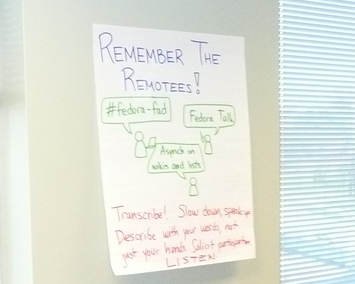 REMEMBER THE
REMOTEES!
#fedora-fad
Fedora Talk
Asynch on
wikis and lists
Transcribe! Slow down, speak up
Describe with your words, not
just your hands. Solicit participation
LISTEN